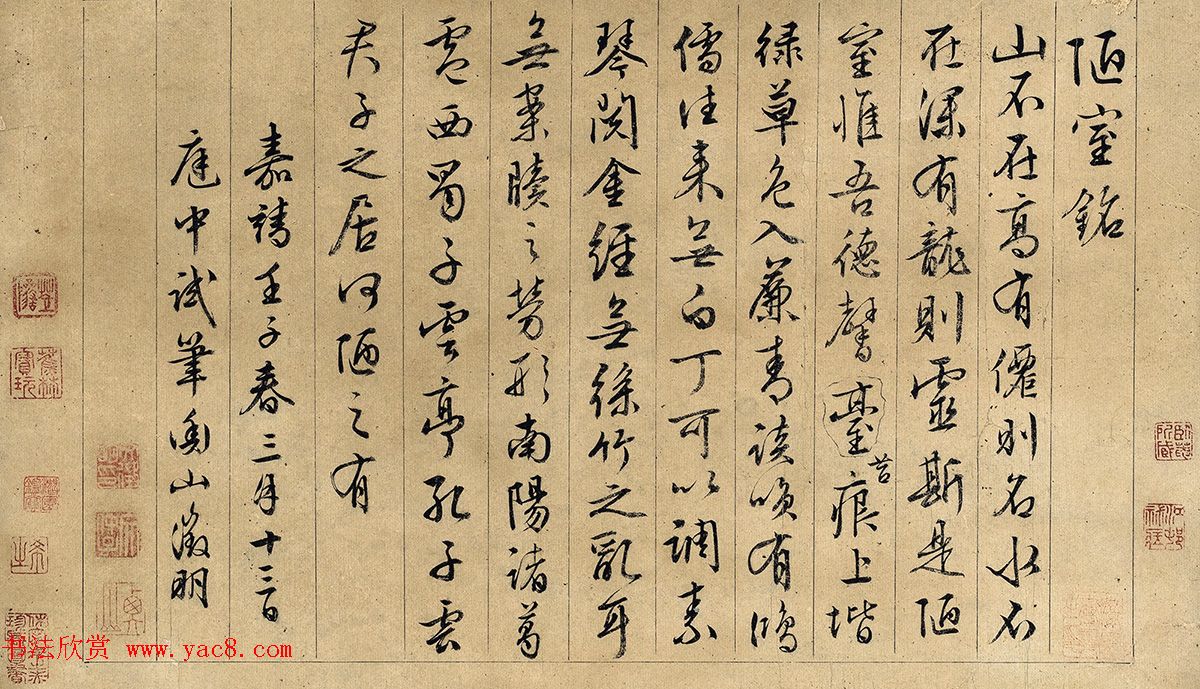 陋室銘
山不在高有僊則名水不
在深有龍則靈斯是陋
室惟吾德馨臺痕上堦
苔
緑草色入簾青談咲有鴻
儒往来無白丁可以調素
琴閱金經無絲竹之亂耳
無案牘之勞形南陽諸葛
廬西蜀子雲亭孔子雲
君子之居何陋之有
嘉靖壬子春三月十三日
庭中試筆衡山徵明
书法欣赏 www.yac8.com